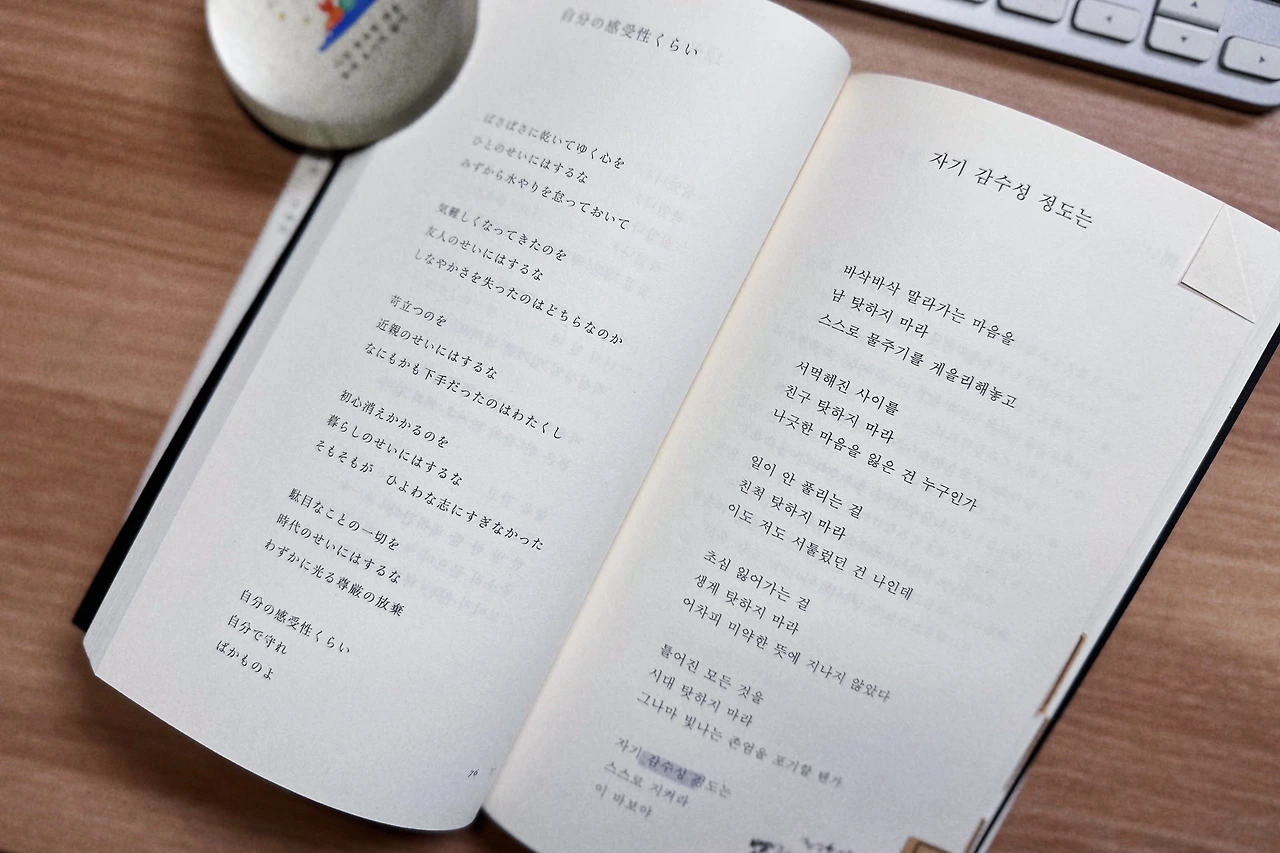 自分の感受性くらい
ぱさぱさに乾いてゆく心を
ひとのせいにはするな
みずから水やりを怠っておいて
気難しくなってきたのを
友人のせいにはするな
しなやかさを失ったのはどちらなのか
苛立つのを
近親のせいにはするな
なにもかも下手だったのはわたくし
初心消えかかるのを
暮らしのせいにはするな
そもそもが　ひよわな志にすぎなかった
駄目なことの一切を
時代のせいにはするな
わずかに光る尊厳の放棄
自分の感受性くらい
自分で守れ
ばかものよ
76
자기 감수성 정도는
바삭바삭 말라가는 마음을
남 탓하지 마라
스스로 물주기를 게을리해놓고
서먹해진 사이를
친구 탓하지 마라
나긋한 마음을 잃은 건 누구인가
일이 안 풀리는 걸
친척 탓하지 마라
이도 저도 서툴렀던 건 나인데
초심 잃어가는 걸
생계 탓하지 마라
어차피 미약한 뜻에 지나지 않았다
틀어진 모든 것을
시대 탓하지 마라
그나마 빛나는 존엄을 포기할 텐가
자기 감수성 정도는
스스로 지켜라
이 바보야